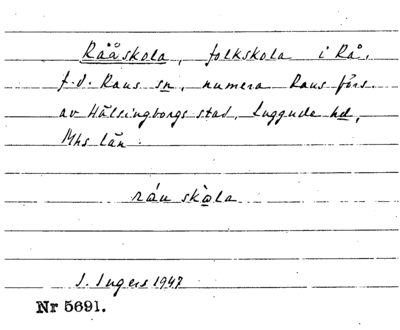 Rååskola, folkskola i Rå,
f.d. Raus sn, numera Raus förs.
av Hälsingborgs stad, Luggude hd,
Mhs län.
ráu skòla
I. Ingers 1947
Nr 5691.